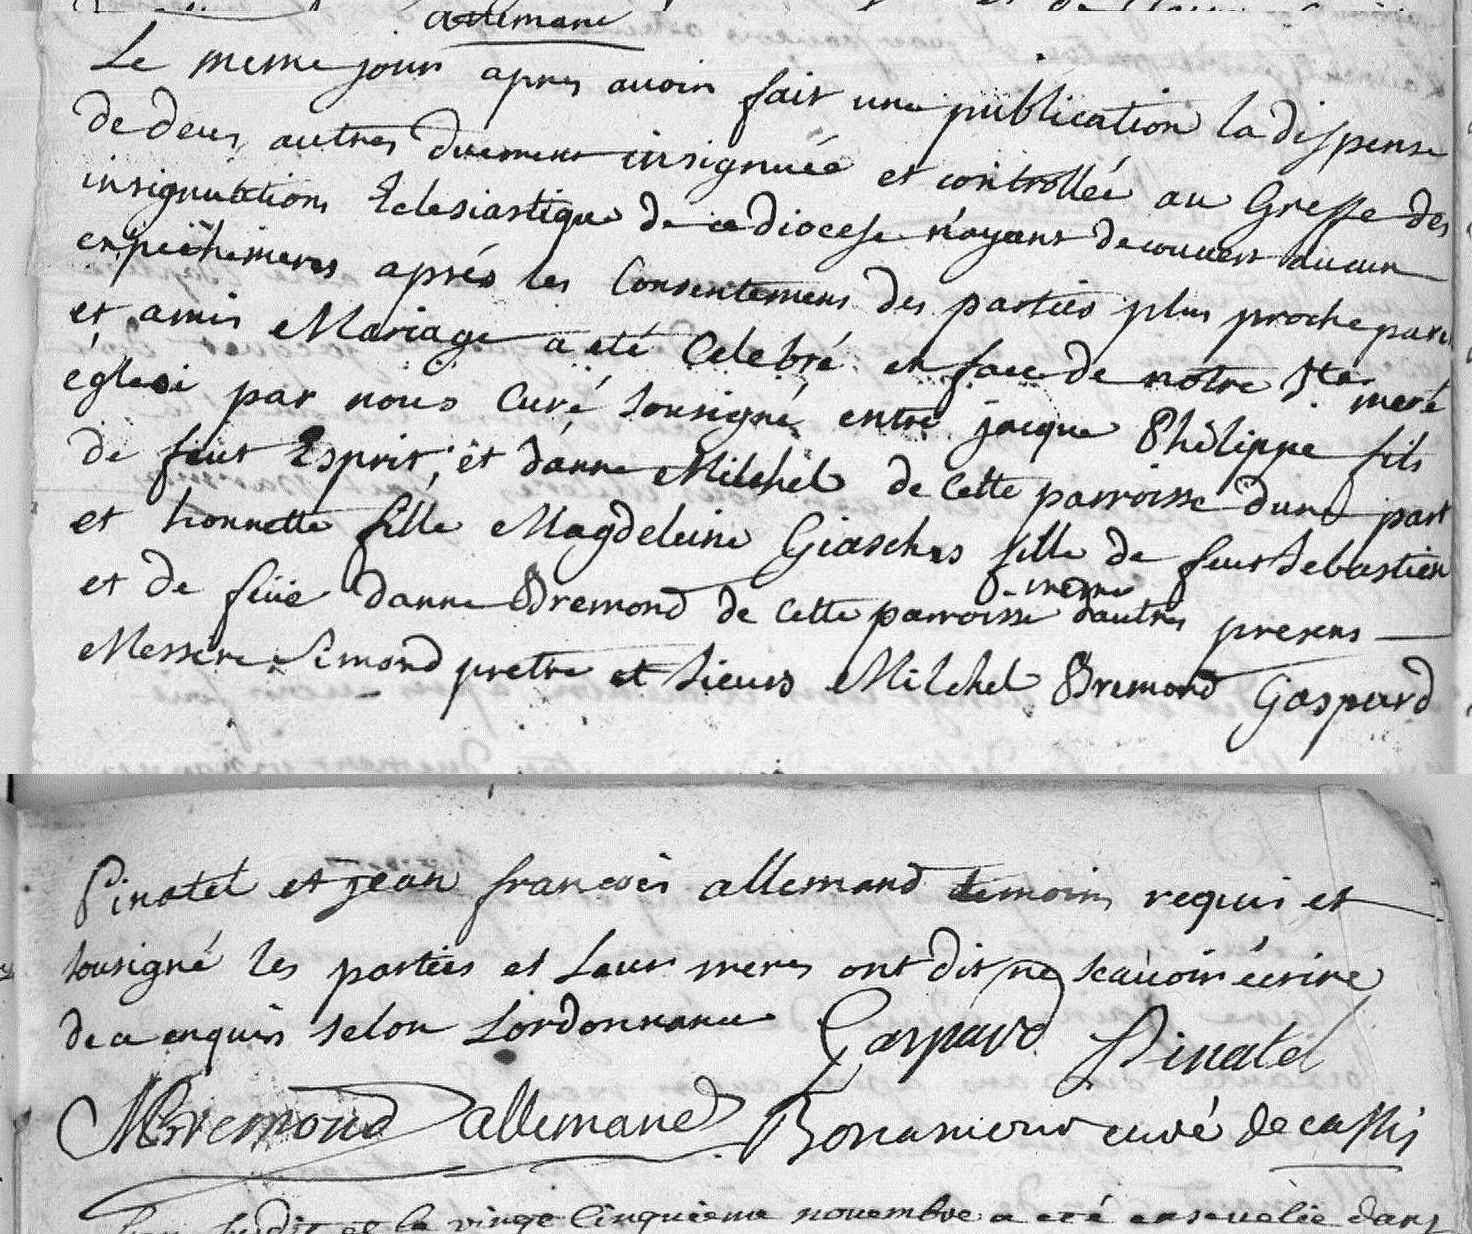 allemane
Le meme jour apres avoir fait une publication la dispense
de deux autres duement insignuée et controllée au Greffe des
insignuations Eclesiastique de ce diocese n'ayant decouvert aucun
enpechement aprés les Consentemens des parties plus proche paren
et amis Mariage a eté Celebré en face de notre Ste mere
église par nous Curé sousigné entre jacque Philippe fils
de feut Esprit, et d'anne Milchel de cette parroisse dune part
et honnette fille Magdeleine fille de feut Sebastien
et de feüe danne Bremond de cette parroisse dautres presens
Messire Simond pretre et Sieurs Milchel Bremond Gaspard
Pinatel et jean francois allemand temoins requis et
sousigné les parties et Leur meres ont dit ne scauoir écrire
de ce enquis selon Lordonnance Gaspard Pinatel
MBremond allemand curé de cassis
Lan susdit et le vingt cinquieme novembre a eté enseuelie dans